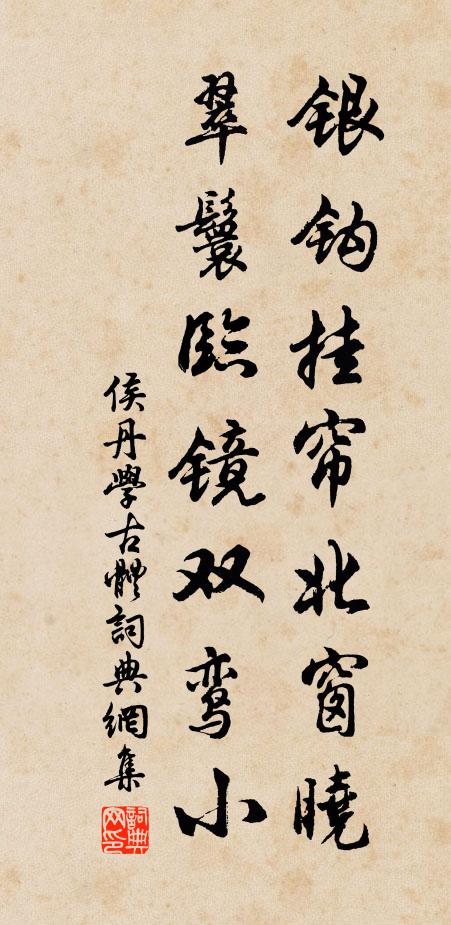 银钩挂帘北窗曉
翠鬟臨镜双鸾小
侯丹學古體詞典網集
詞典网印